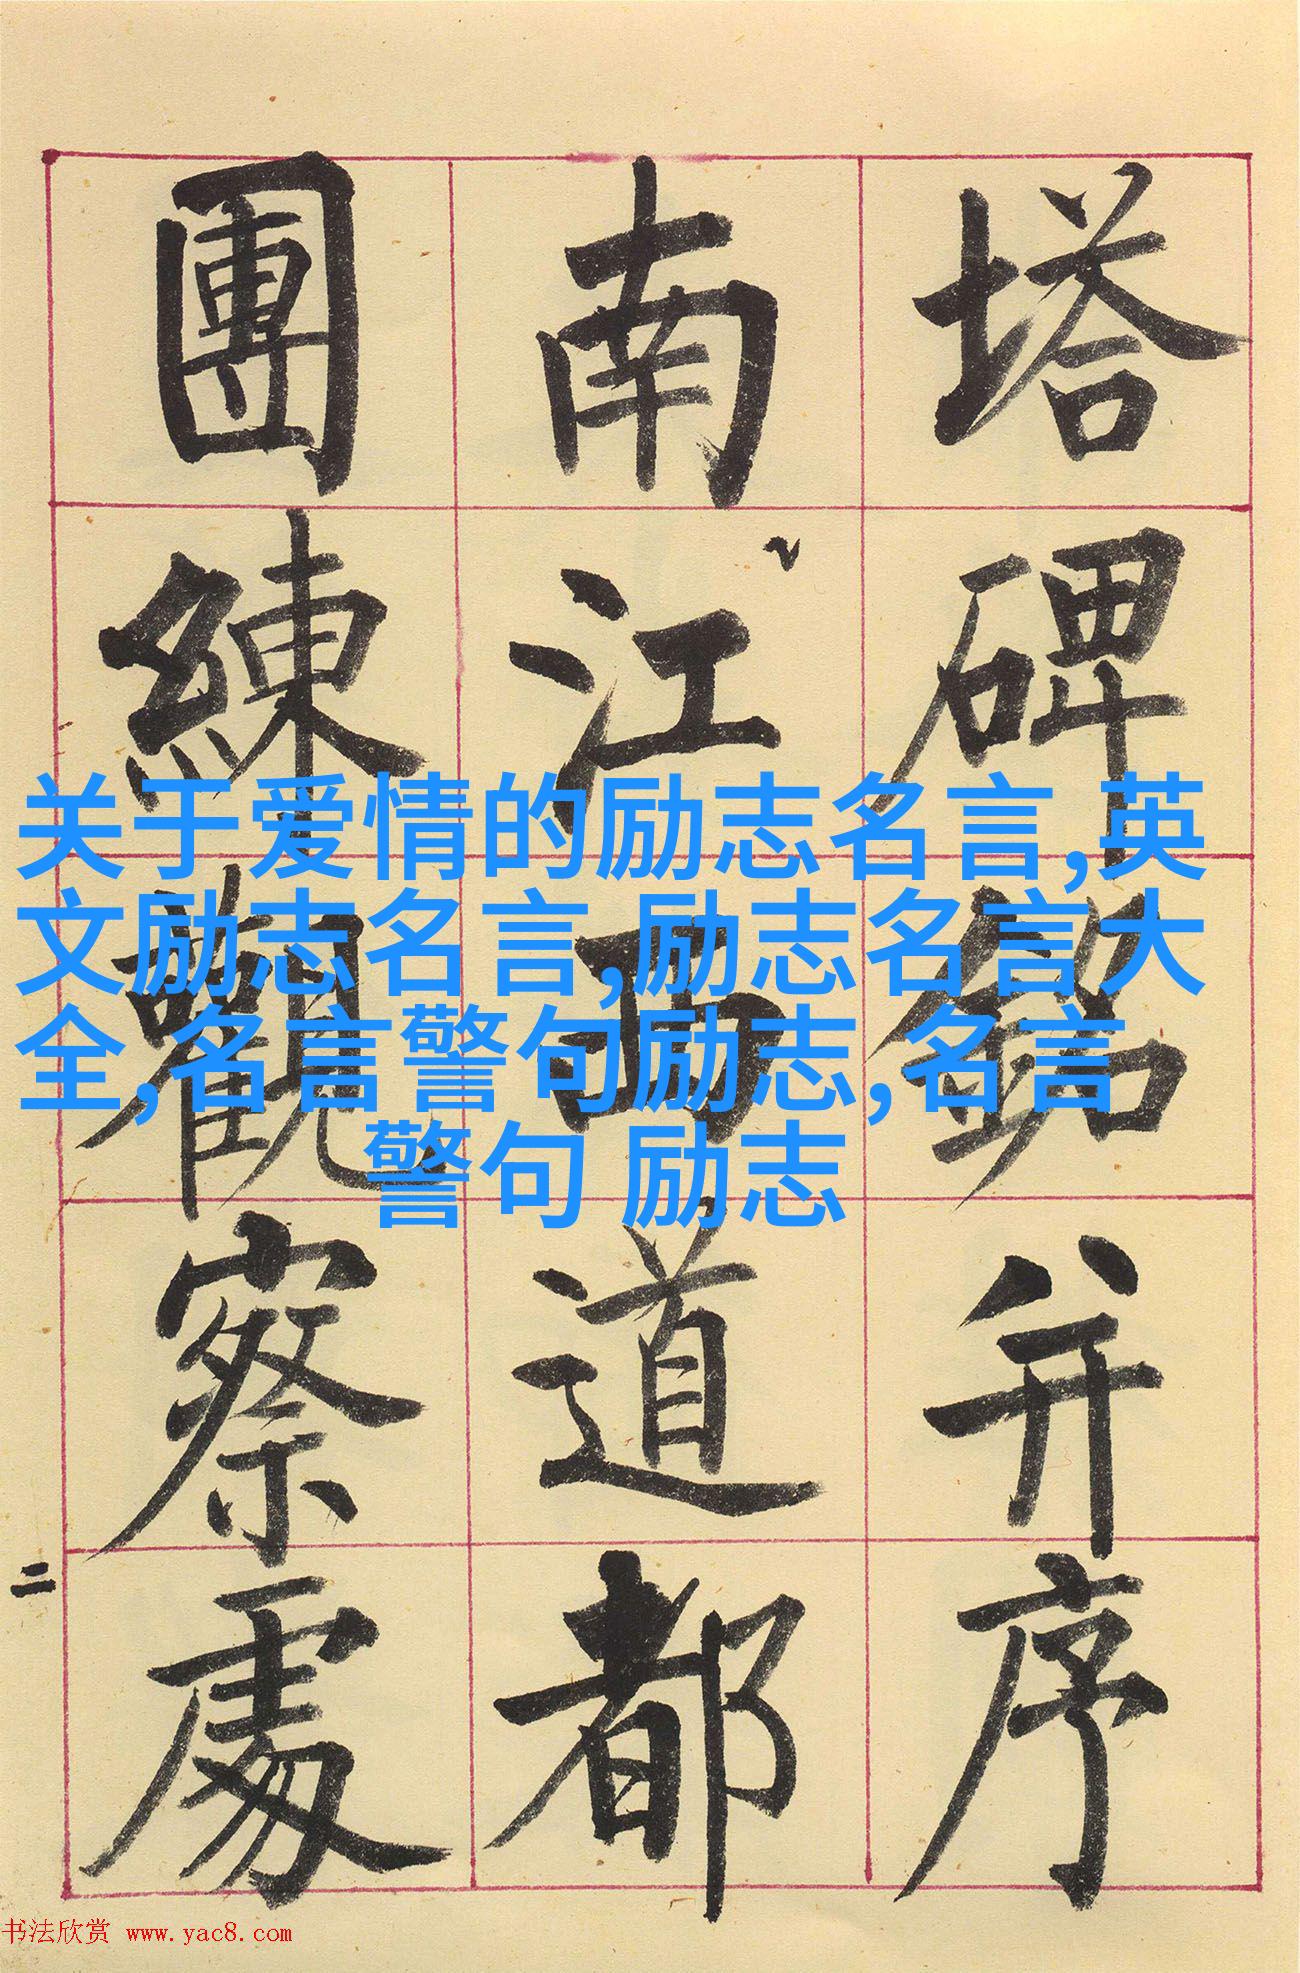 塔碑銘并序
南江西道都
團練觀察處
二
关于爱情的励志名言,英
文励志名言,励志名言大
全,名言警句励志,名言
警句 励志
书法欣赏 www.yac8.com